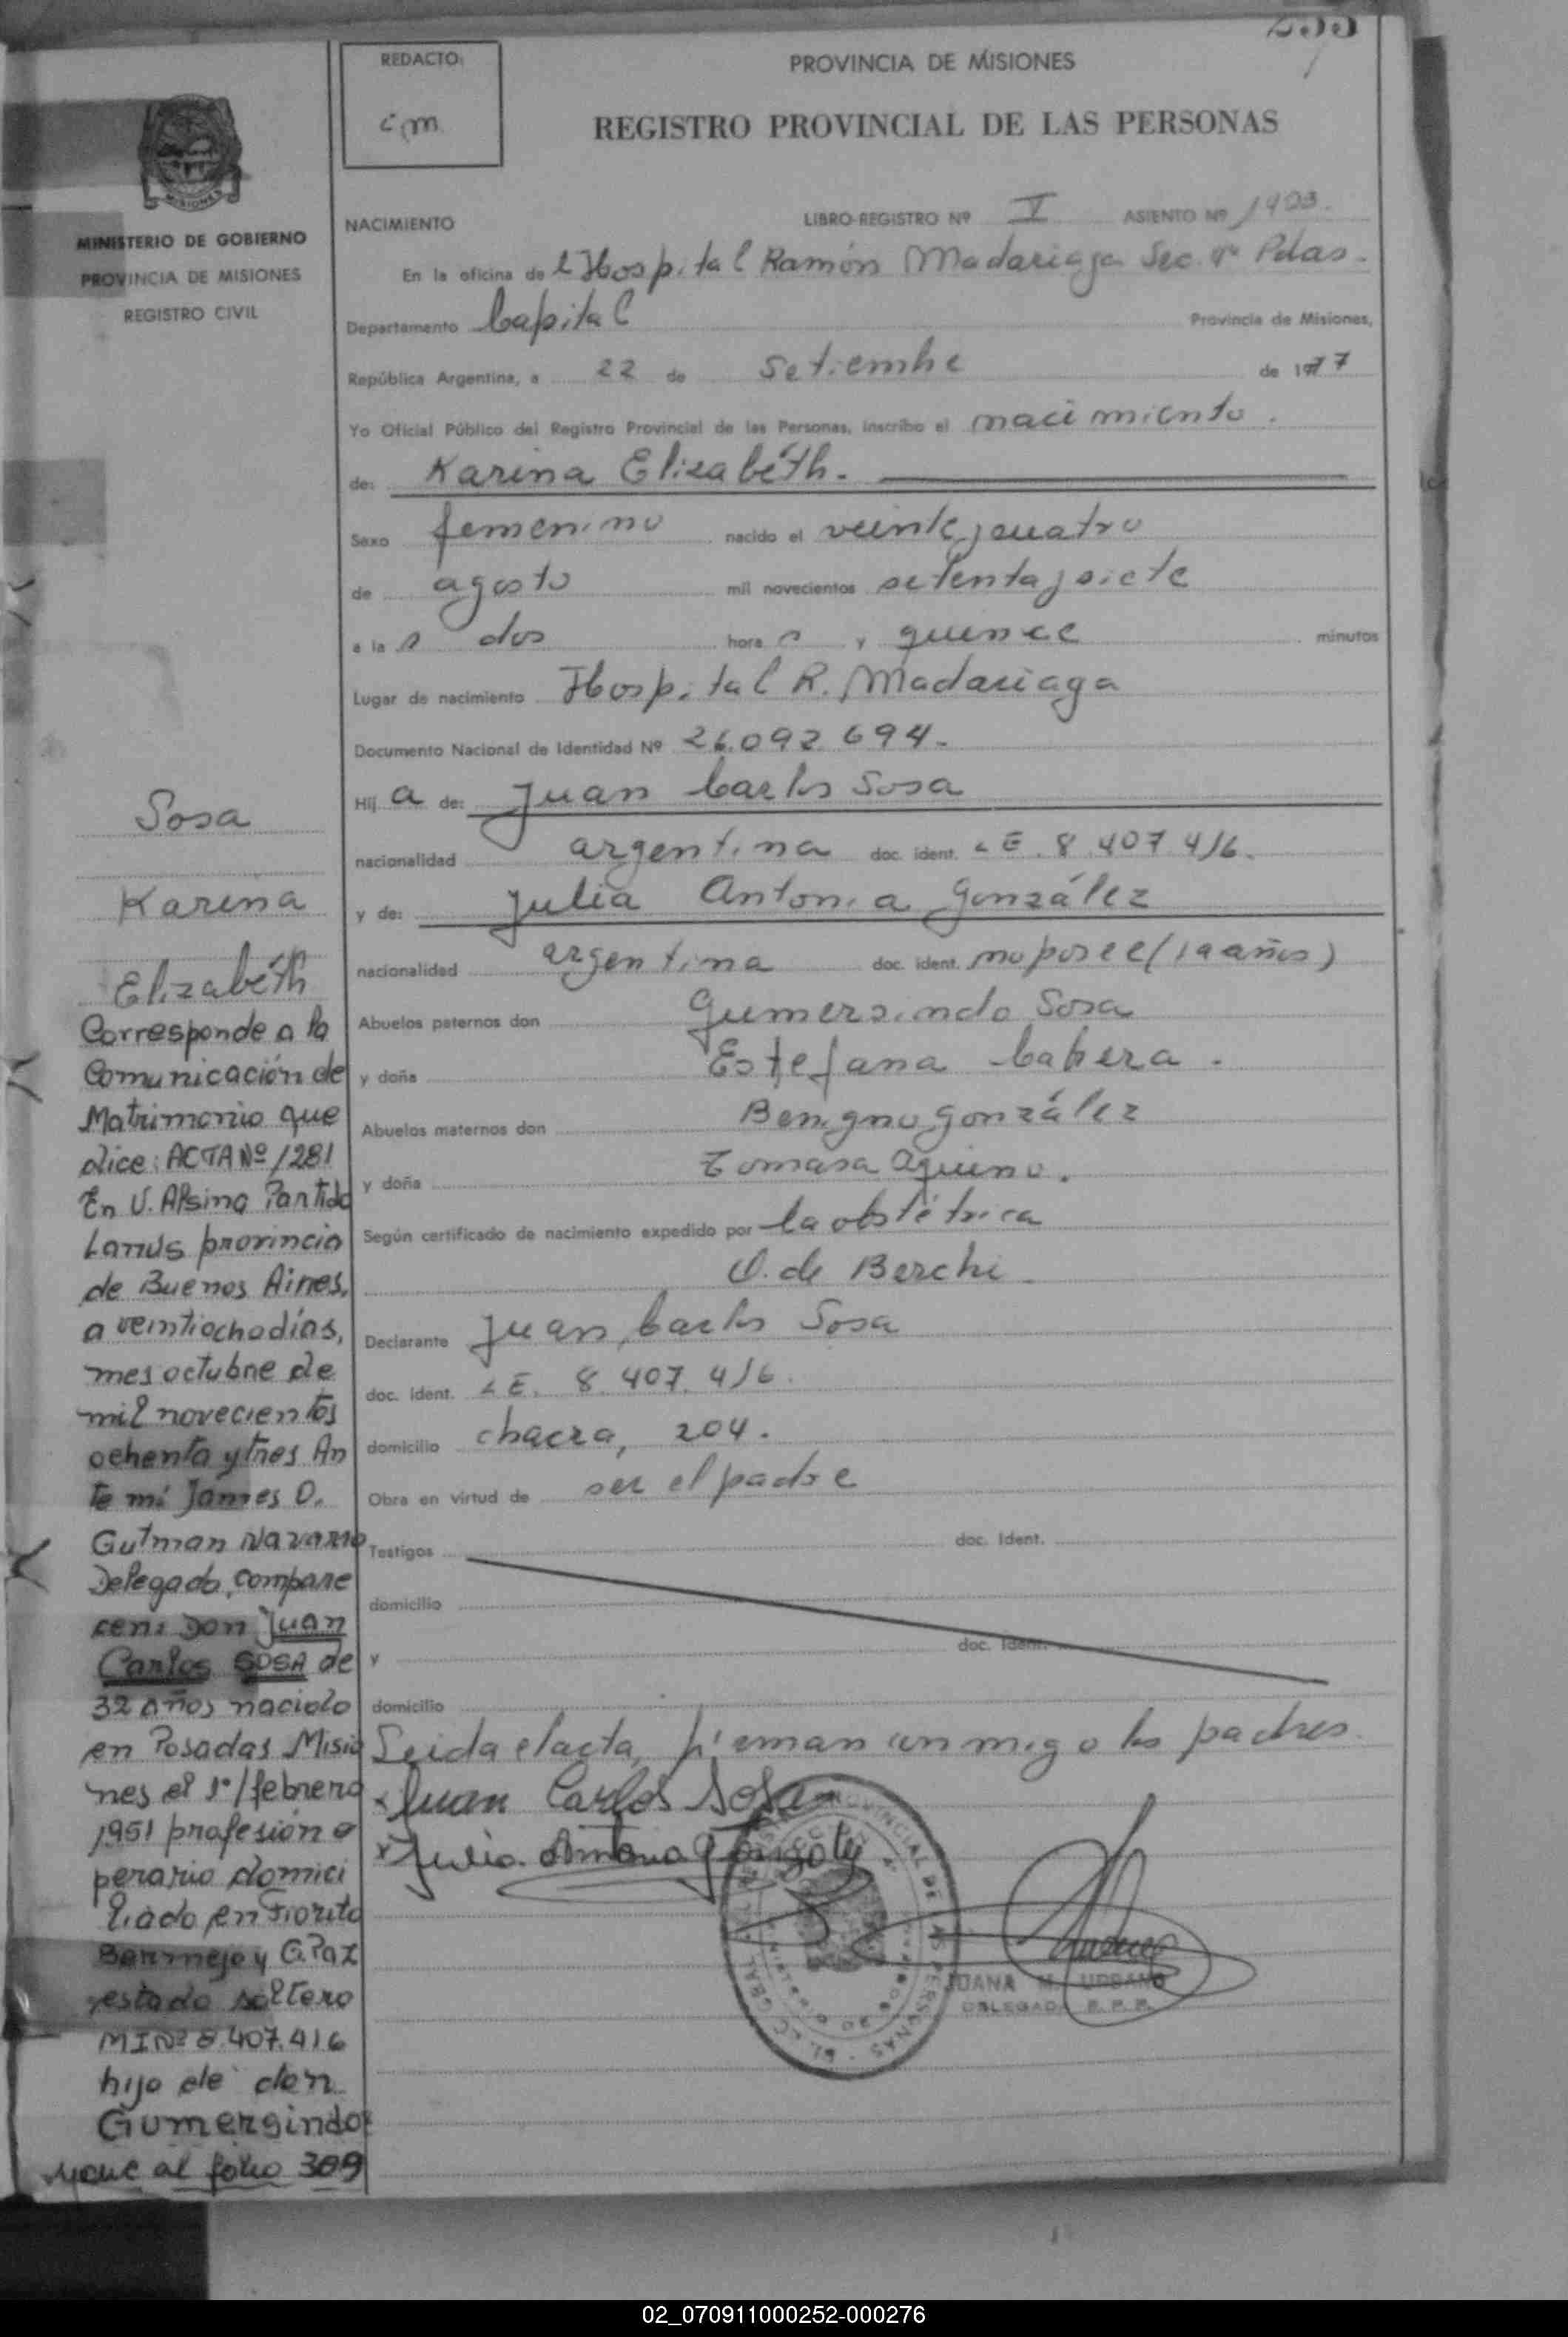 REDACTO:
cm.
PROVINCIA DE MISIONES
REGISTRO PROVINCIAL DE LAS PERSONAS
MISIONES
MINISTERIO DE GOBIERNO
PROVINCIA DE MISIONES
REGISTRO CIVIL
NACIMIENTO LIBRO-REGISTRO Nº V ASIENTO Nº 1923.
En la oficina del Hospital Ramón Madariaga Sec. 4ª Pdas.
Departamento Capital Provincia de Misiones,
República Argentina, a 22 de Setiembre de 1977
Yo Oficial Público del Registro Provincial de las Personas, inscribo el nacimiento.
de: Karina Elizabéth.
Sexo femenino nacido el veinte y cuatro
de agosto mil novecientos setenta y siete
a las dos horas y quince minutos
Lugar de nacimiento Hospital R. Madariaga
Documento Nacional de Identidad Nº 26.092.694.
Hija de: Juan Carlos Sosa
nacionalidad argentina doc. ident. LE. 8.407.416.
y de: Julia Antonia González
nacionalidad argentina doc. ident. no posee (19 años)
Abuelos paternos don Gumersindo Sosa
y doña Estefana Cabrera.
Abuelos maternos don Benigno González
y doña Tomasa Aquino.
Según certificado de nacimiento expedido por la obstétrica
O. de Berchi
Declarante Juan Carlos Sosa
doc. ident. LE. 8.407.416.
domicilio chacra, 204.
Obra en virtud de ser el padre
Testigos doc. Ident.
domicilio
y doc. Ident.
domicilio
Leida el acta, firman conmigo los padres.
Juan Carlos Sosa
Julia Antonia Gonzalez
JUANA M. URBANO
DELEGADA R. P. P.
Sosa
Karina
Elizabéth
Corresponde a la
Comunicación de
Matrimonio que
dice: ACTA Nº 1281
En V. Alsina Partido
Lanús provincia
de Buenos Aires,
a veintiocho días,
mes octubre de
mil novecientos
ochenta y tres An
te mi James O.
Gutman Navarro
Delegado, compare
cen: Don Juan
Carlos SOSA de
32 años nacido
en Posadas Misio
nes el 1º/febrero
1951 profesión o
perario domici
liado en Fiorito
Bermejo y G. Paz
estado soltero
MI Nº 8.407.416
hijo de don
Gumersindo
sigue al folio 309
02_070911000252-000276